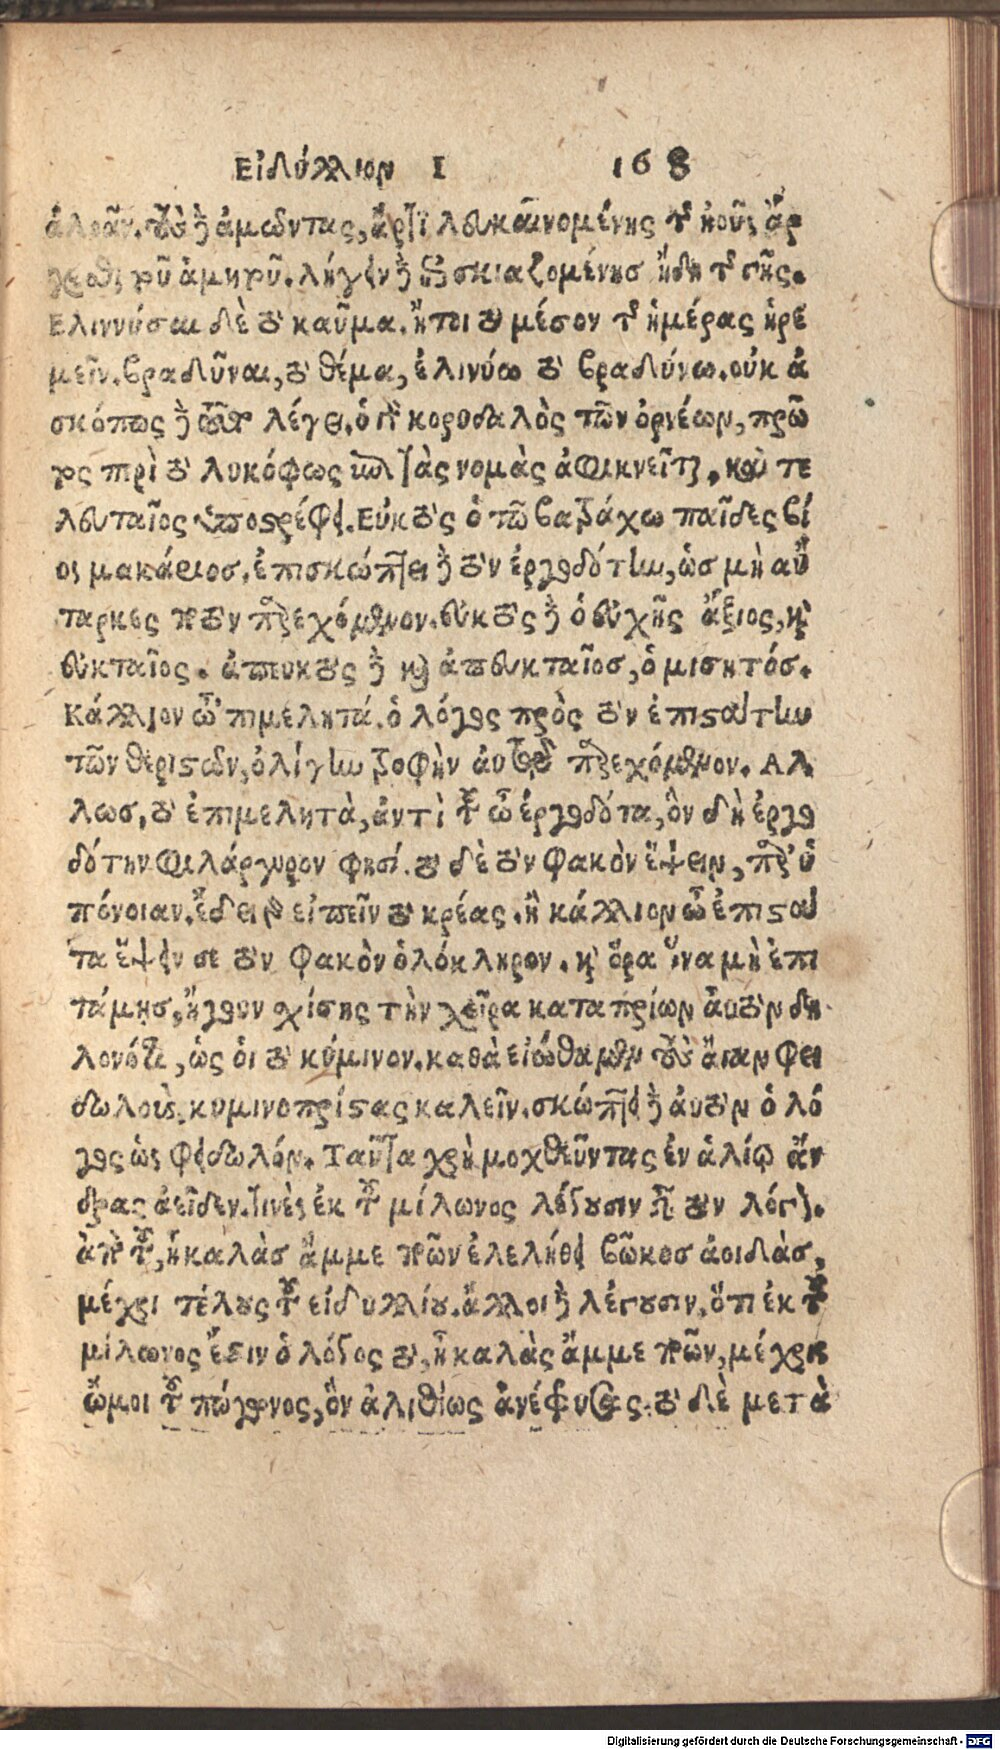 Εἰδύλλιον I 168
ἁλοᾶν. τοὺς δὲ ἀμῶντας, ἄρτι λευκαινομένης τῆς ἠοῦς ἄρ
χεσθαι τοῦ ἀμητοῦ. λήγειν δὲ ἐπισκιαζομένησ ἤδη τῆς γῆς.
Ελιννύσαι δὲ τὸ καῦμα. ἤτοι τὸ μέσον τῆς ἡμέρας ἠρε
μεῖν. βραδῦναι, τὸ θέμα, ἐλινύω τὸ βραδύνω. οὐκ ἀ
σκόπως δὲ τοῦτο λέγει. ὁ γὰρ κορυδαλὸς τῶν ὀρνέων, πρῶ
τος περὶ τὸ λυκόφως ἐπὶ τὰς νομὰς ἀφικνεῖται. καὶ τε
λευταῖος ὑποστρέφει. Εὐκτὸς ὁ τῶ βατράχω παῖδες βί
ος μακάριοσ. ἐπισκώπτει δὲ τὸν ἐργοδότην, ὡσ μὴ αὔ
ταρκες ποτὸν παρεχόμενον. εὐκτὸς δὲ ὁ εὐχῆς ἄξιος, καὶ
εὐκταῖος. ἀπευκτὸς δὲ καὶ ἀπευκταῖοσ, ὁ μισητόσ.
Κάλλιον ὦ 'πιμελητά. ὁ λόγος πρὸς τὸν ἐπιστάτην
τῶν θεριστῶν, ὀλίγην τροφὴν αὐτοῖς παρεχόμενον. Αλ
λωσ, τὸ ἐπιμελητὰ, ἀντὶ τοῦ ὦ ἐργοδότα, ὃν δὴ ἐργο
δότην φιλάργυρον φησί. τὸ δὲ τὸν φακὸν ἕψειν, παρ' ὑ
πόνοιαν. ἔδει γὰρ εἰπεῖν τὸ κρέας. ἢ κάλλιον ὦ ἐπιστά
τα ἕψειν σε τὸν φακὸν ὁλόκληρον. καὶ ὅρα ἵνα μὴ ἐπι
τάμησ, ἤγουν σχίσης τὴν χεῖρα καταπρίων αὐτὸν δη
λονότι, ὡς οἱ τὸ κύμινον. καθὰ εἰώθαμεν τοὺς ἄγαν φει
δωλοὺς, κυμινοπρίστας καλεῖν. σκώπτει δὲ αὐτὸν ὁ λό
γος ὡς φειδωλόν. Ταῦτα χρὴ μοχθεῦντας ἐν ἁλίῳ ἄν
δρας ἀείδεν. τινὲς ἐκ τοῦ μίλωνος λέγουσιν εἶναι τὸν λόγον.
ἀπὸ τοῦ, ἦ καλὰσ ἄμμε ποῶν ἐλελήθει βῶκοσ ἀοιδὰσ,
μέχρι τέλους τοῦ εἰδυλλίου. ἄλλοι δὲ λέγουσιν, ὅτι ἐκ τοῦ
μίλωνος ἔστιν ὁ λόγος τὸ, ἦ καλὰς ἄμμε ποῶν, μέχρι
ὤμοι τοῦ πώγωνος, ὃν ἀλιθίως ἀνέφυσας. τὸ δὲ μετὰ
Digitalisierung gefördert durch die Deutsche Forschungsgemeinschaft - DFG